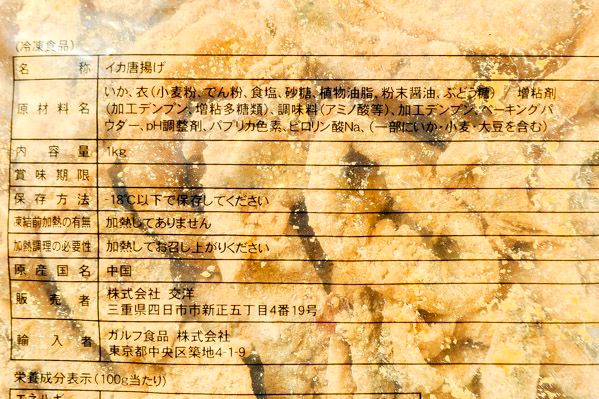 (冷凍食品)
名称 イカ唐揚げ
原材料名 いか、衣(小麦粉、でん粉、食塩、砂糖、植物油脂、粉末醤油、ぶどう糖)/増粘剤
(加工デンプン、増粘多糖類)、調味料(アミノ酸等)、加工デンプン、ベーキングパ
ウダー、pH調整剤、パプリカ色素、ピロリン酸Na、(一部にいか・小麦・大豆を含む)
内容量 1kg
賞味期限
保存方法 -18℃以下で保存してください
凍結前加熱の有無 加熱してありません
加熱調理の必要性 加熱してお召し上がりください
原産国名 中国
販売者 株式会社 交洋
三重県四日市市新正五丁目4番19号
輸入者 ガルフ食品 株式会社
東京都中央区築地4-1-9
栄養成分表示(100g当たり)
エネルギー